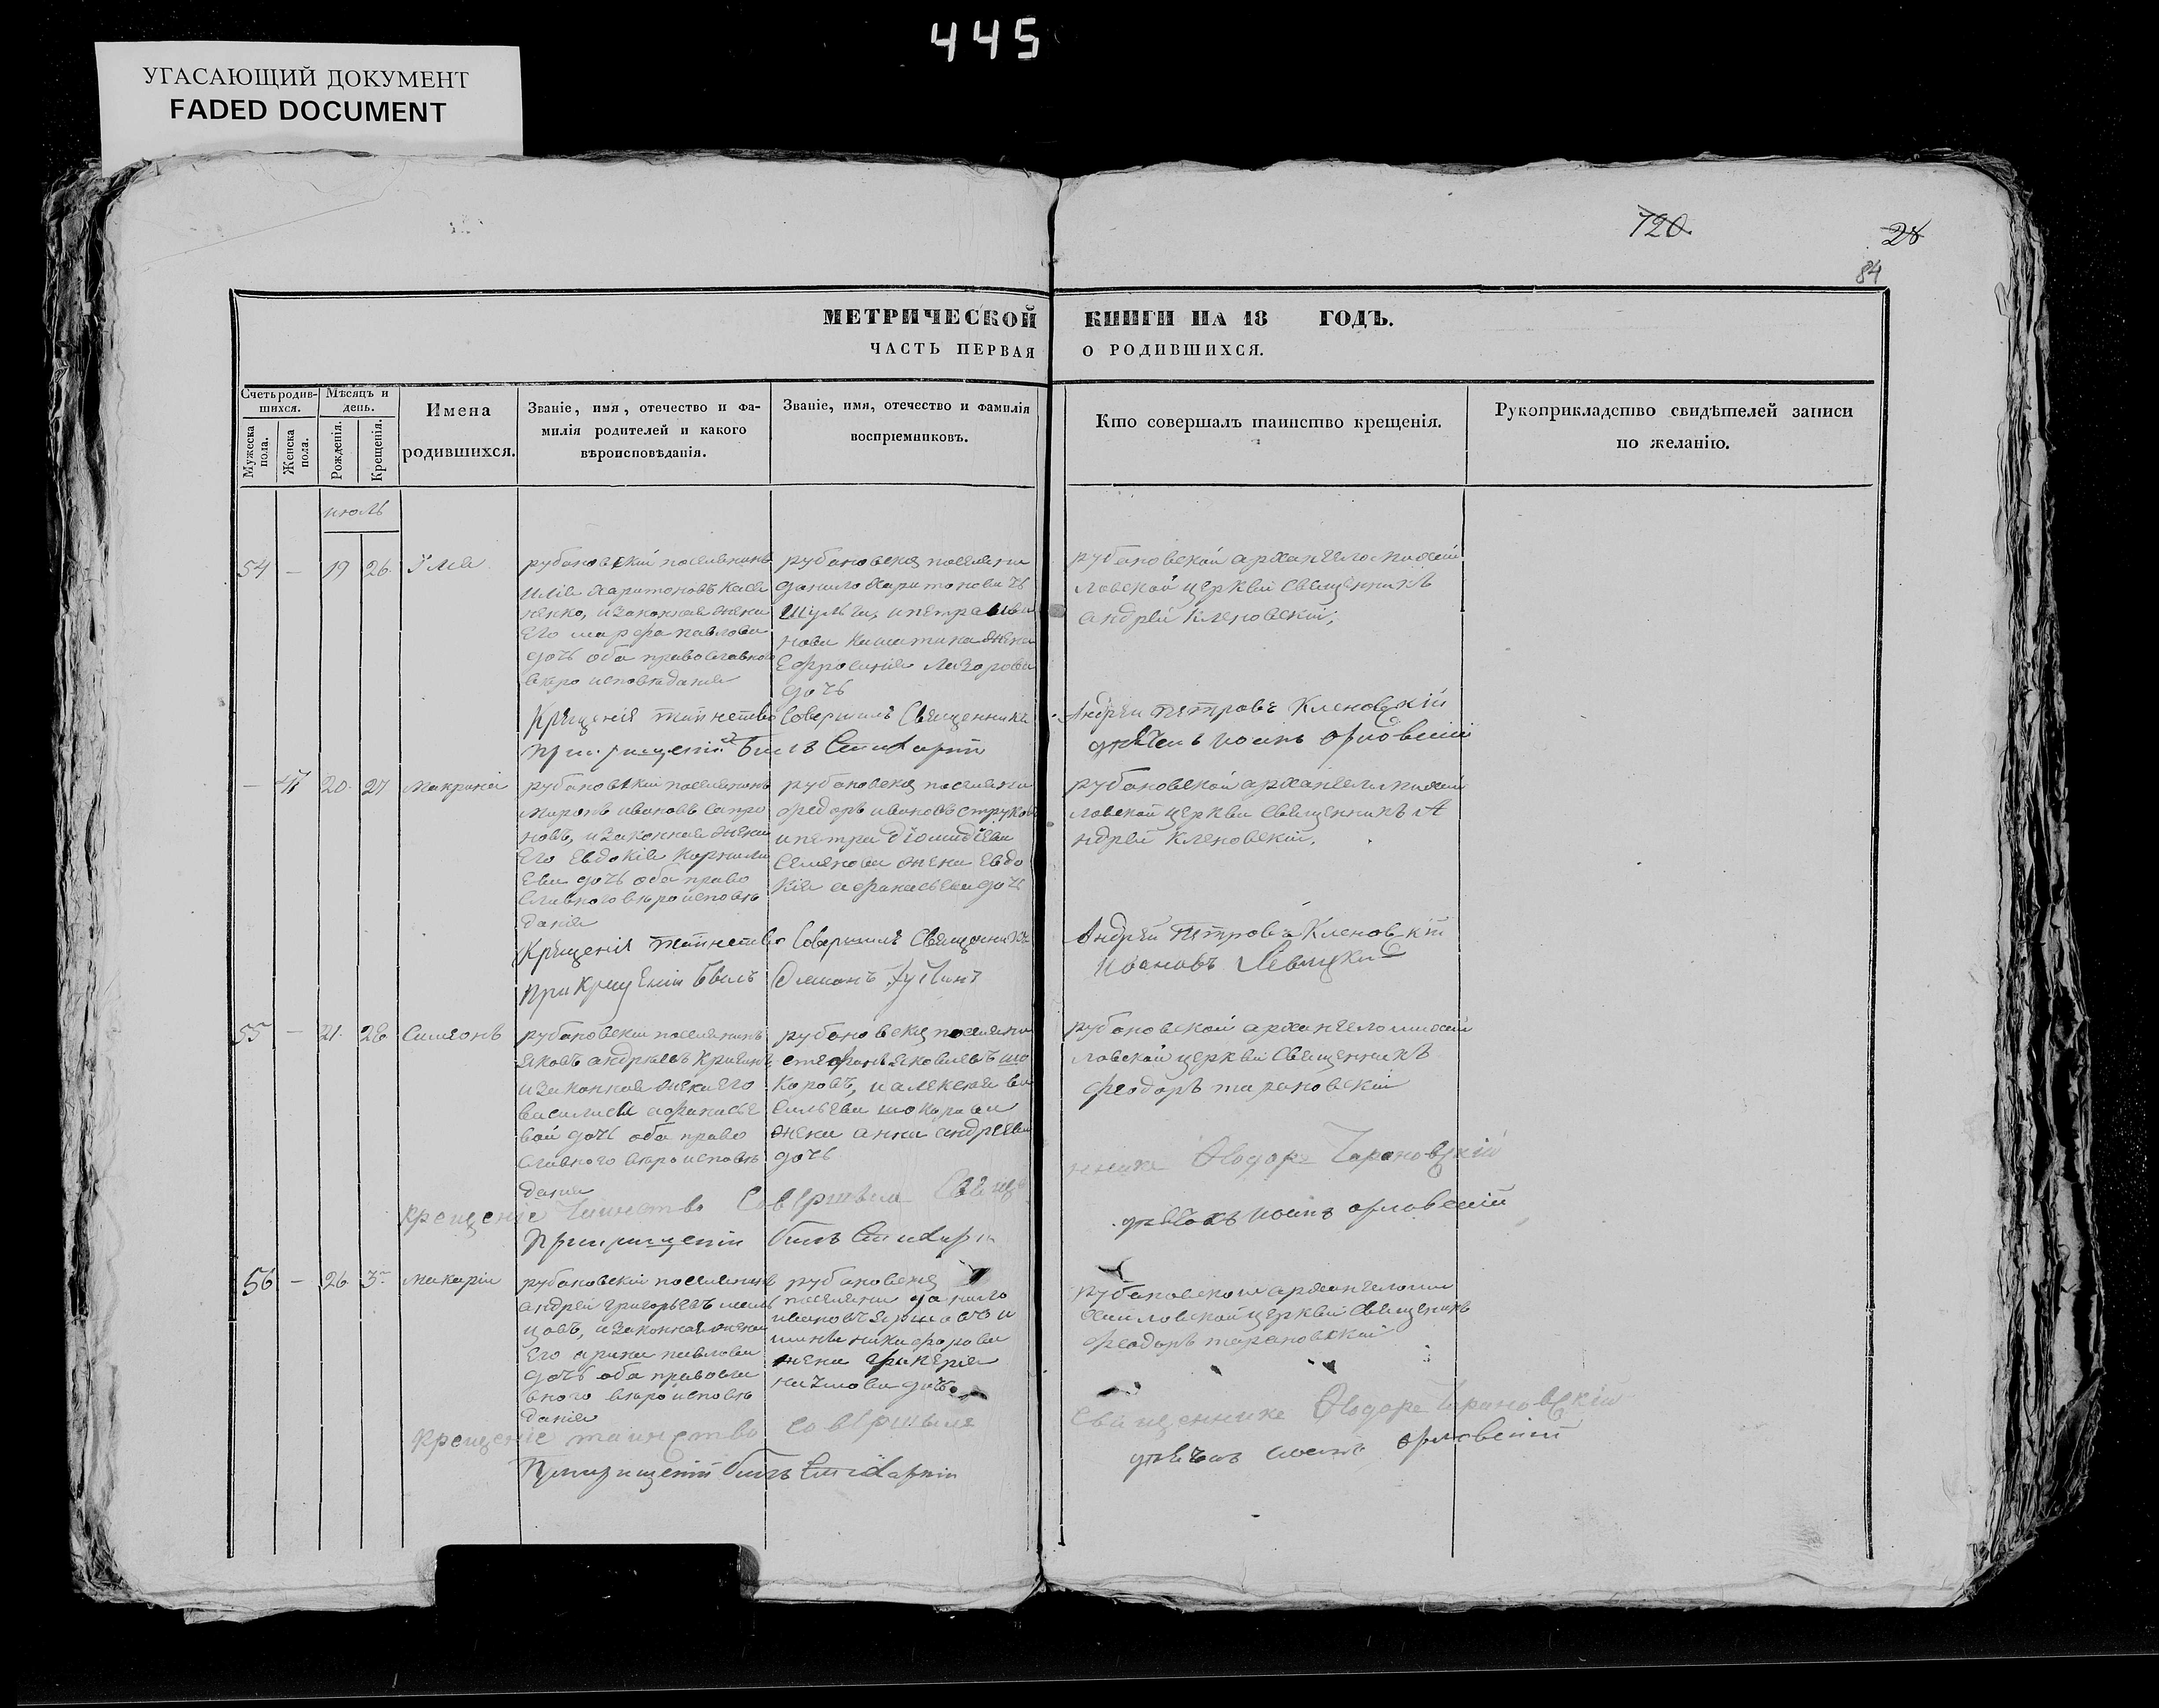 445
УГАСАЮЩИЙ ДОКУМЕНТ
FADED DOCUMENT
720.
28
84
МЕТРИЧЕСКОЙ КНИГИ НА 18 ГОДЪ.
ЧАСТЬ ПЕРВАЯ О РОДИВШИХСЯ.
Счетъ родив-
шихся.
Мужеска
пола.
Женска
пола.
Мѣсяцъ и
день.
Рожденія.
Крещенія.
Имена
родившихся.
Званіе, имя, отечество и фа-
милія родителей и какого
вѣроисповѣданія.
Званіе, имя, отечество и фамилія
воспріемниковъ.
Кто совершалъ таинство крещенія.
Рукоприкладство свидѣтелей записи
по желанію.
июль
54 — 19 26 Илїя
рубановскїй поселянинъ
илїя Харитоновъ
ненко, и законная жена
его марфа павлова
дочь оба православного
вѣро исповѣданїя
поселяни
данило Харитоновичъ
и петра ива
нова жена
Ефросинїя Лазорова
дочь
рубановской архангело михаи
ловской церкви священникъ
андрей Кленовскїй;
Крещенїя таинство совершилъ священникъ Андрей Петровъ Кленовскїй
былъ дьячекъ иоанъ орловскїй
— 47 20 27 макрина
рубановскїй поселянинъ
миронъ ивановъ сапро
новъ, и законная жена
его Евдокїя Корнили
ева дочь оба право
славного вѣро исповѣ
данїя
поселяни
федоръ ивановъ струков
и петра дїомидїева
семянова жена Евдо
кїя афанасьева дочь
рубановской архангело михаи
ловской церкви священникъ А
ндрей Кленовскїй.
Крещенїя таинство совершилъ священникъ Андрей Петровъ Кленовскїй
при крещенїи былъ Ивановъ Левицкий
55 — 21 28 Симеонъ
рубановскїй поселянинъ
яковъ андрѣевъ
и законная жена его
василиса афанасье
вой дочь оба право
славного вѣро исповѣ
данїя
поселяни
стефанъ яковлевъ шо
коровъ, и алексѣя ва
сильева шокорова
жена анна андреева
дочь
рубановской архангело михаи
ловской церкви священникъ
феодоръ тарановскїй
Крещенїе таинство совершилъ свяще
нникъ Ѳеодоръ Тарановскїй
былъ дьячекъ иоанъ орловскїй
56 — 26 3 макарїй
рубановскїй поселянинъ
андрей григорьевъ
цовъ, и законная жена
его арина павлова
дочь оба правосла
вного вѣро исповѣ
данїя
поселяни данило
ивановъ и
никифорова
жена
дочь
рубановской архангело ми
хаиловской церкви священникъ
феодоръ тарановскїй
Крещенїе таинство совершилъ
священникъ Ѳеодоръ Тарановскїй
былъ дьячекъ иоанъ орловскїй